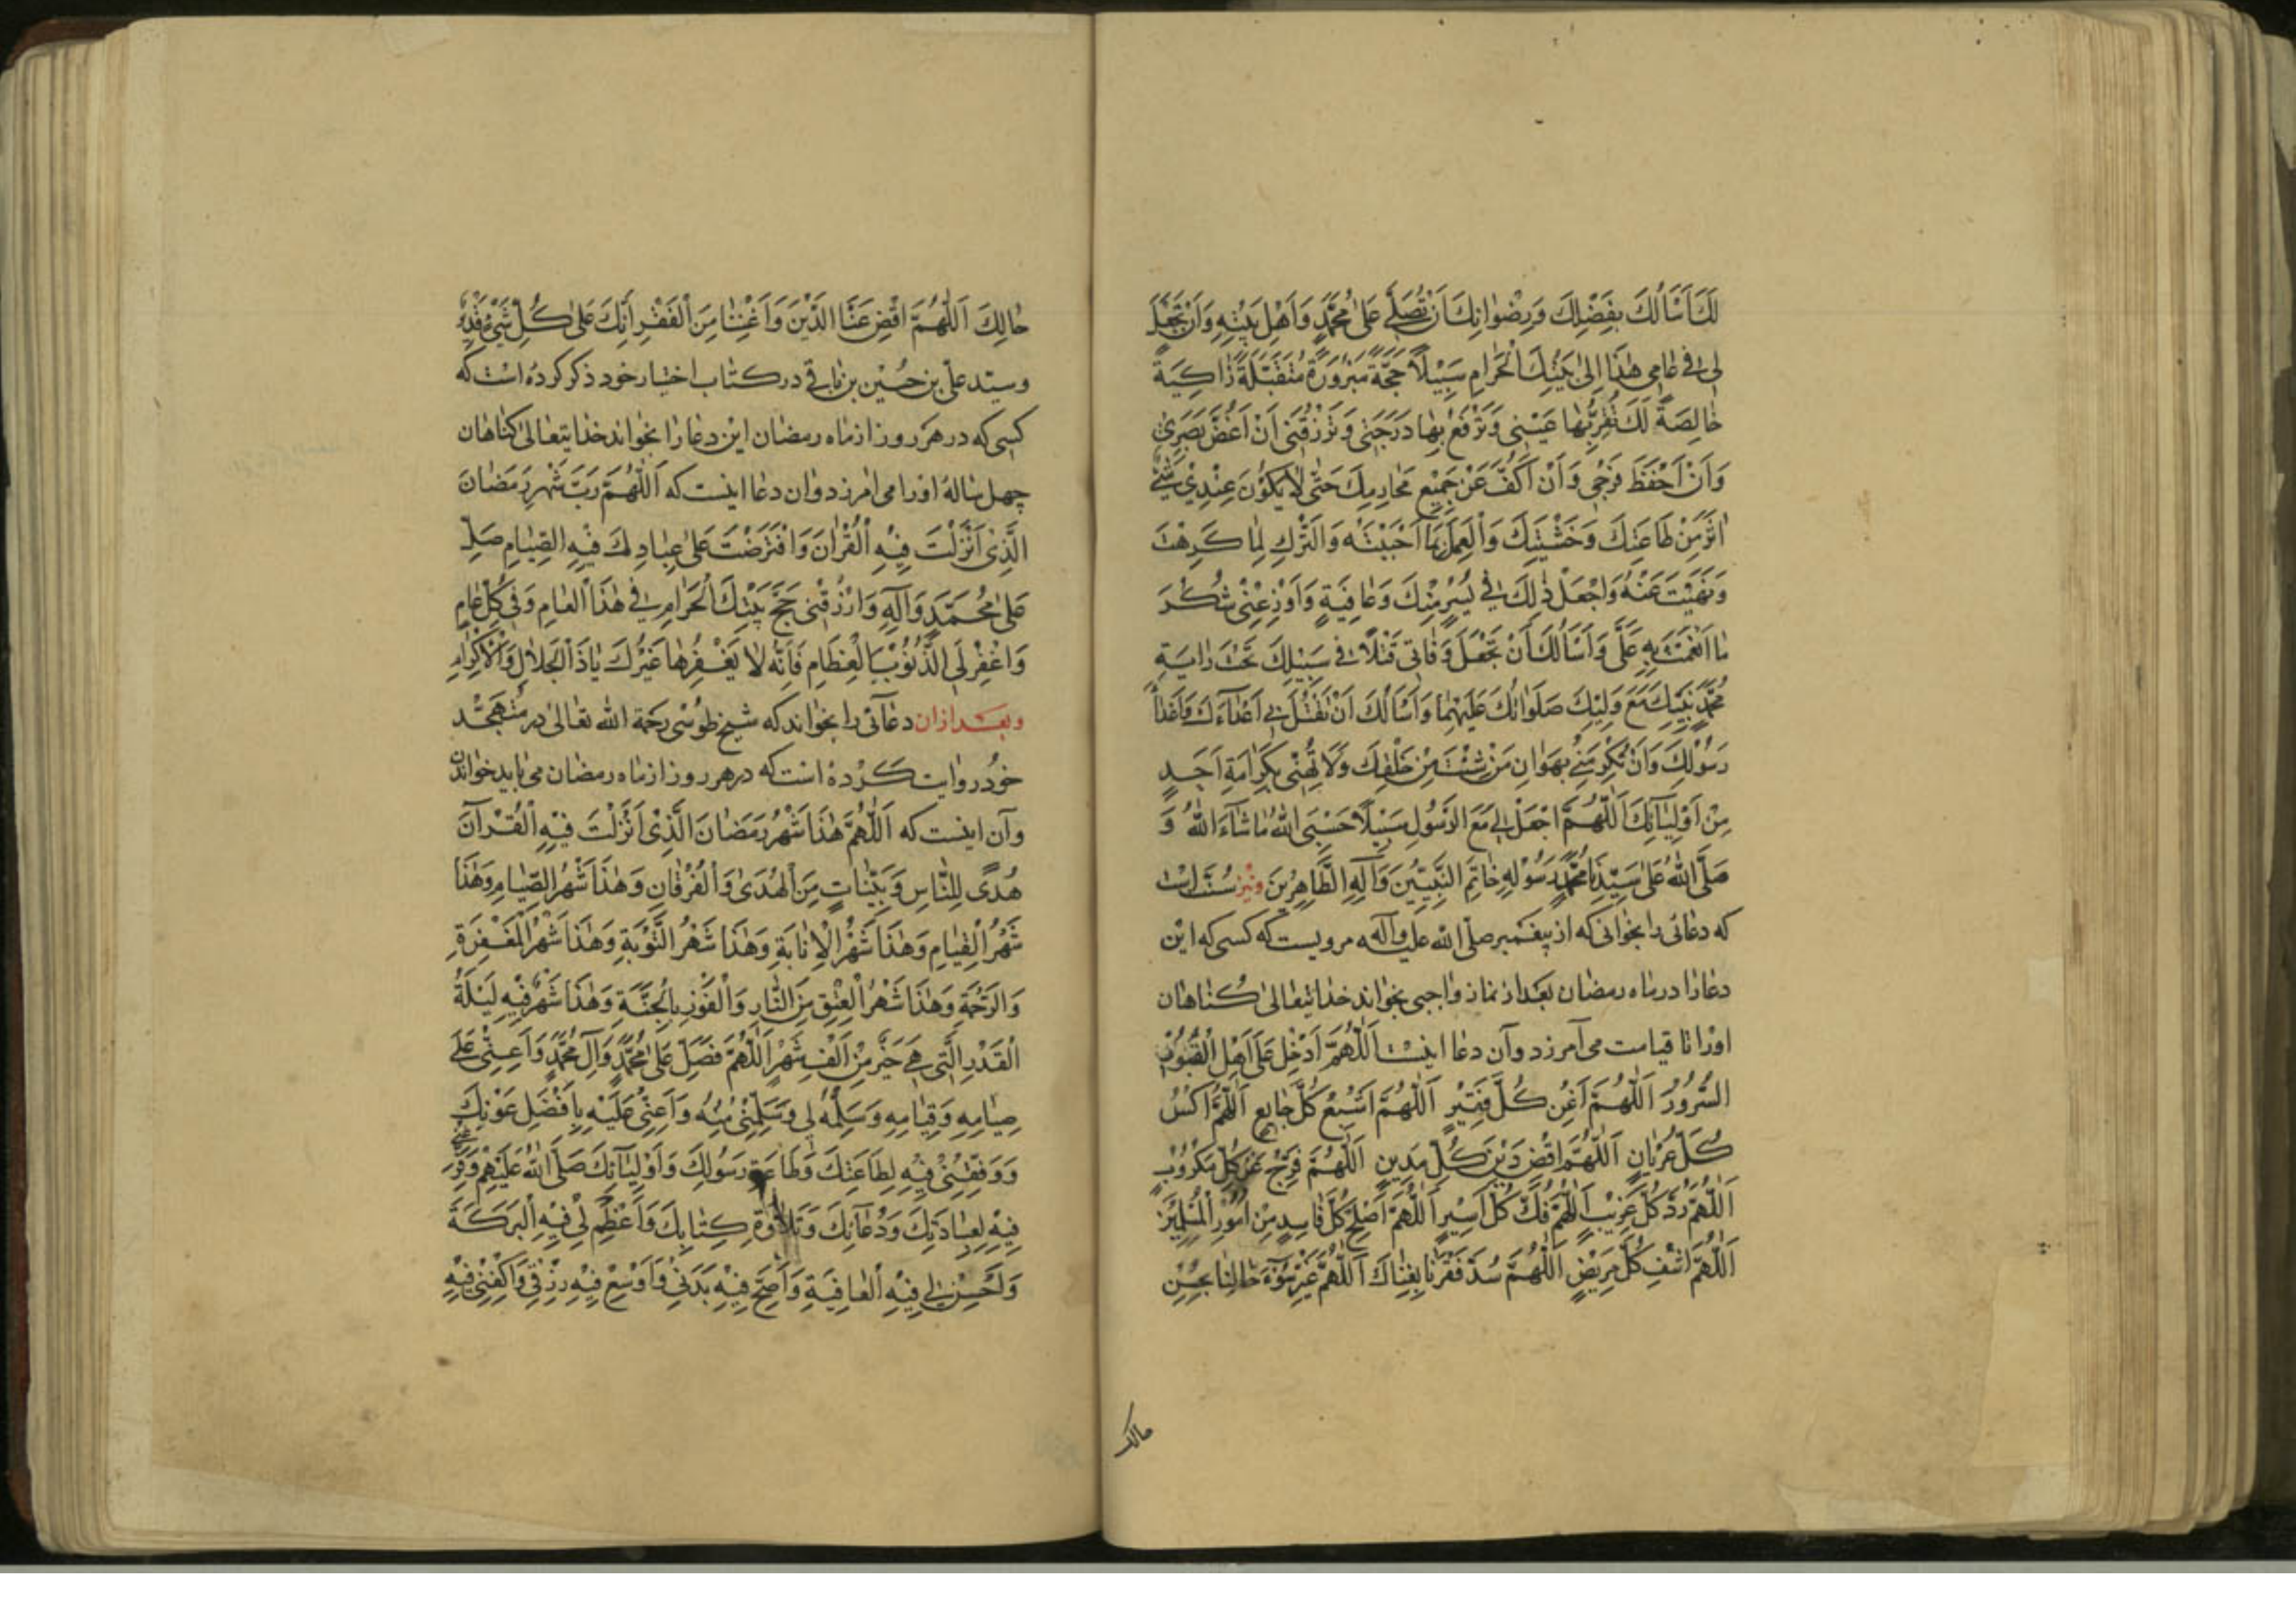 لَكَ أَسْأَلُكَ بِفَضْلِكَ وَرِضْوٰانِكَ اَنْ تُصَلِّيَ عَلىٰ مُحَمَّدٍ وَاَهْلِ بَيْتِهِ وَاَنْ تَجْعَلَ
لِي في عٰامِي هٰذَا اِلىٰ بَيْتِكَ الْحَرٰامِ سَبِيْلاً حَجَّةً مَبْرُوْرَةً مُتَقَبَّلَةً زٰاكِيَةً
خٰالِصَةً لَكَ تُقِرُّ بِهٰا عَيْنِي وَتَرْفَعُ بِهٰا دَرَجَتِي وَتَرْزُقَنِي اَنْ اَغُضَّ بَصَرِيْ
وَاَنْ اَحْفَظَ فَرْجِي وَاَنْ اَكُفَّ عَنْ جَمِيْعِ مَحٰارِمِكَ حَتّٰى لاٰ يَكُوْنَ عِنْدِيْ شَيْءٌ
اٰثَرَ مِنْ طَاعَتِكَ وَخَشْيَتِكَ وَالْعَمَلِ بِمٰا اَحْبَبْتَهُ وَالتَّرْكِ لِمٰا كَرِهْتَ
وَنَهَيْتَ عَنْهُ وَاجْعَلْ ذٰلِكَ في يُسْرٍ مِنْكَ وَعٰافِيَةٍ وَاَوْزِعْنِي شُكْرَ
مٰا اَنْعَمْتَ بِهِ عَلَيَّ وَاَسْأَلُكَ اَنْ تَجْعَلَ وَفٰاتِي قَتْلاً في سَبِيْلِكَ تَحْتَ رٰايَةِ
مُحَمَّدٍ نَبِيِّكَ مَعَ وَلِيِّكَ صَلَوٰاتُكَ عَلَيْهِمٰا وَاَسْأَلُكَ اَنْ تَقْتُلَ بِي اَعْدٰآءَكَ وَاَعْدٰآءَ
رَسُوْلِكَ وَاَنْ تُكْرِمَنِي بِهَوٰانِ مَنْ شِئْتَ مِنْ خَلْقِكَ وَلاَ تُهِنِّي بِكَرٰامَةِ اَحَدٍ
مِنْ اَوْلِيٰآئِكَ اَللّٰهُمَّ اجْعَلْ لِي مَعَ الرَّسُوْلِ سَبِيْلاً حَسْبِيَ اللّٰهُ مٰا شٰآءَ اللّٰهُ وَ
صَلَّى اللّٰهُ عَلىٰ سَيِّدِنٰا مُحَمَّدٍ رَسُوْلِهِ خٰاتِمِ النَّبِيِّيْنَ وَآلِهِ الطَّاهِرِيْنَ ونيز سُنّت است
كه دعائى را بخوانى كه از پيغمبر صلّى الله عليه وآله مرويست كه كسى كه اين
دعا را در ماه رمضان بعد از نماز واجبى بخواند خدايتعالىٰ كناهان
اورا تا قيامت مى آمرزد وآن دعا اينست اَللّٰهُمَّ اَدْخِلْ عَلىٰ اَهْلِ الْقُبُوْرِ
السُّرُوْرَ اَللّٰهُمَّ اَغْنِ كُلَّ فَقِيْرٍ اَللّٰهُمَّ اَشْبِعْ كُلَّ جٰايِعٍ اَللّٰهُمَّ اكْسُ
كُلَّ عُرْيٰانٍ اَللّٰهُمَّ اقْضِ دَيْنَ كُلِّ مَدِيْنٍ اَللّٰهُمَّ فَرِّجْ عَنْ كُلِّ مَكْرُوْبٍ
اَللّٰهُمَّ رُدَّ كُلَّ غَرِيْبٍ اَللّٰهُمَّ فُكَّ كُلَّ اَسِيْرٍ اَللّٰهُمَّ اَصْلِحْ كُلَّ فٰاسِدٍ مِنْ اُمُوْرِ الْمُسْلِمِيْنَ
اَللّٰهُمَّ اشْفِ كُلَّ مَرِيْضٍ اَللّٰهُمَّ سُدَّ فَقْرَنٰا بِغِنٰاكَ اَللّٰهُمَّ غَيِّرْ سُوْٓءَ حٰالِنٰا بِحُسْنِ
حالك
حٰالِكَ اَللّٰهُمَّ اقْضِ عَنَّا الدَّيْنَ وَاَغْنِنٰا مِنَ الْفَقْرِ اِنَّكَ عَلىٰ كُلِّ شَيْءٍ قَدِيْرٌ
وسيّد علىّ بن حسين بن باقى در كتاب اختيار خود ذكر كرده است كه
كسى كه در هر روز از ماه رمضان اين دعا را بخواند خدايتعالىٰ كناهان
چهل ساله اورا مى امرزد وان دعا اينست كه اَللّٰهُمَّ رَبَّ شَهْرِ رَمَضٰانَ
الَّذِيْ اَنْزَلْتَ فِيْهِ الْقُرْاٰنَ وَافْتَرَضْتَ عَلىٰ عِبٰادِكَ فِيْهِ الصِّيٰامَ صَلِّ
عَلىٰ مُحَمَّدٍ وَآلِهِ وَارْزُقْنِي حَجَّ بَيْتِكَ الْحَرٰامِ في هٰذَا الْعٰامِ وَفي كُلِّ عٰامٍ
وَاغْفِرْ لِيَ الذُّنُوْبَ الْعِظٰامَ فَاِنَّهُ لاٰ يَغْفِرُهٰا غَيْرُكَ يٰا ذَا الْجَلاٰلِ وَالْاِكْرٰامِ
وبعد از ان دعائى را بخواند كه شيخ طوسى رحمة الله تعالىٰ در متهجّد
خود روايت كرده است كه در هر روز از ماه رمضان مى بايد خواندن
وآن اينست كه اَللّٰهُمَّ هٰذَا شَهْرُ رَمَضٰانَ الَّذِيْ اَنْزَلْتَ فِيْهِ الْقُرْآنَ
هُدًى لِلنَّاسِ وَبَيِّنٰاتٍ مِنَ الْهُدىٰ وَالْفُرْقٰانِ وَهٰذَا شَهْرُ الصِّيٰامِ وَهٰذَا
شَهْرُ الْقِيٰامِ وَهٰذَا شَهْرُ الْاِنٰابَةِ وَهٰذَا شَهْرُ التَّوْبَةِ وَهٰذَا شَهْرُ الْمَغْفِرَةِ
وَالرَّحْمَةِ وَهٰذَا شَهْرُ الْعِتْقِ مِنَ النّٰارِ وَالْفَوْزِ بِالْجَنَّةِ وَهٰذَا شَهْرٌ فِيْهِ لَيْلَةُ
الْقَدْرِ الَّتِي هِيَ خَيْرٌ مِنْ اَلْفِ شَهْرٍ اَللّٰهُمَّ فَصَلِّ عَلىٰ مُحَمَّدٍ وَآلِ مُحَمَّدٍ وَاَعِنِّي عَلىٰ
صِيٰامِهِ وَقِيٰامِهِ وَسَلِّمْهُ لِي وَسَلِّمْنِي مِنْهُ وَاَعِنِّي عَلَيْهِ بِاَفْضَلِ عَوْنِكَ
وَوَفِّقْنِي فِيْهِ لِطَاعَتِكَ وَطَاعَةِ رَسُوْلِكَ وَاَوْلِيٰآئِكَ صَلَّى اللّٰهُ عَلَيْهِمْ وَفَرِّغْنِي
فِيْهِ لِعِبٰادَتِكَ وَدُعٰآئِكَ وَتِلاٰوَةِ كِتٰابِكَ وَاَعْظِمْ لِي فِيْهِ الْبَرَكَةَ
وَاَحْسِنْ لِي فِيْهِ الْعٰافِيَةَ وَاَصِحَّ فِيْهِ بَدَنِيْ وَاَوْسِعْ فِيْهِ رِزْقِيْ وَاكْفِنِيْ فِيْهِ